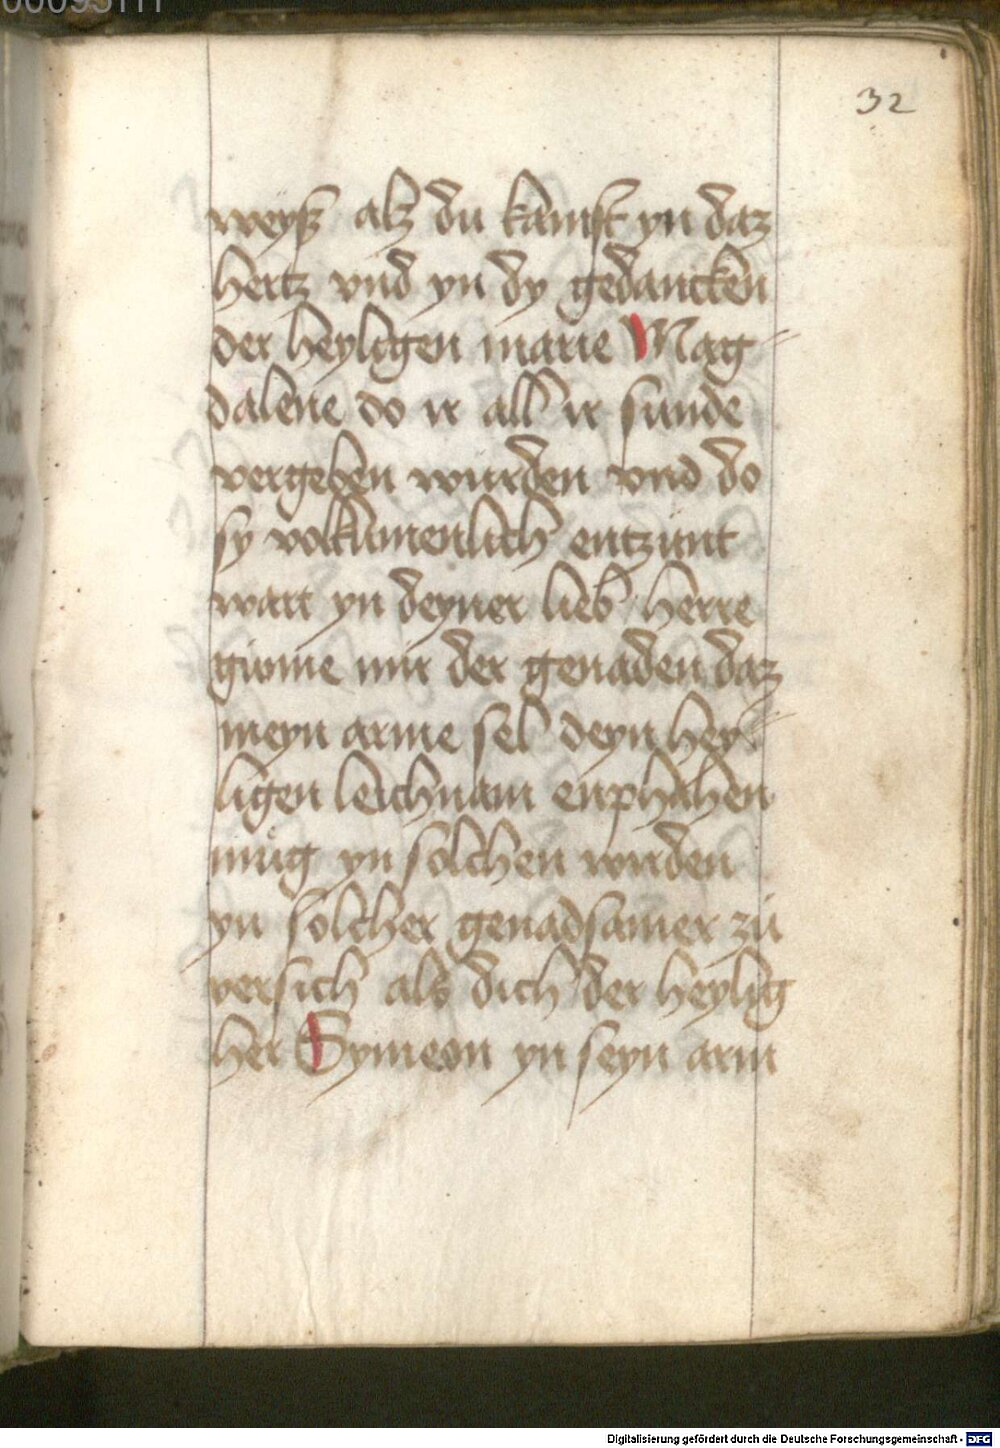 00095111
32
weysz alz du kamst yn daz
hertz vnd yn dy gedancken
der heyligen marie Mag-
dalene do ir all ir sunde
vergeben wurden vnd do
sy volkumenlich entzunt
wart yn deyner lieb herre
gunne mir der genaden daz
meyn arme sel deyn hey-
ligen leichnam enphahen
mug yn solchen wirden
yn solcher genadsamer zu
versich als dich der heylig
her Symeon yn seyn arm
Digitalisierung gefördert durch die Deutsche Forschungsgemeinschaft - DFG